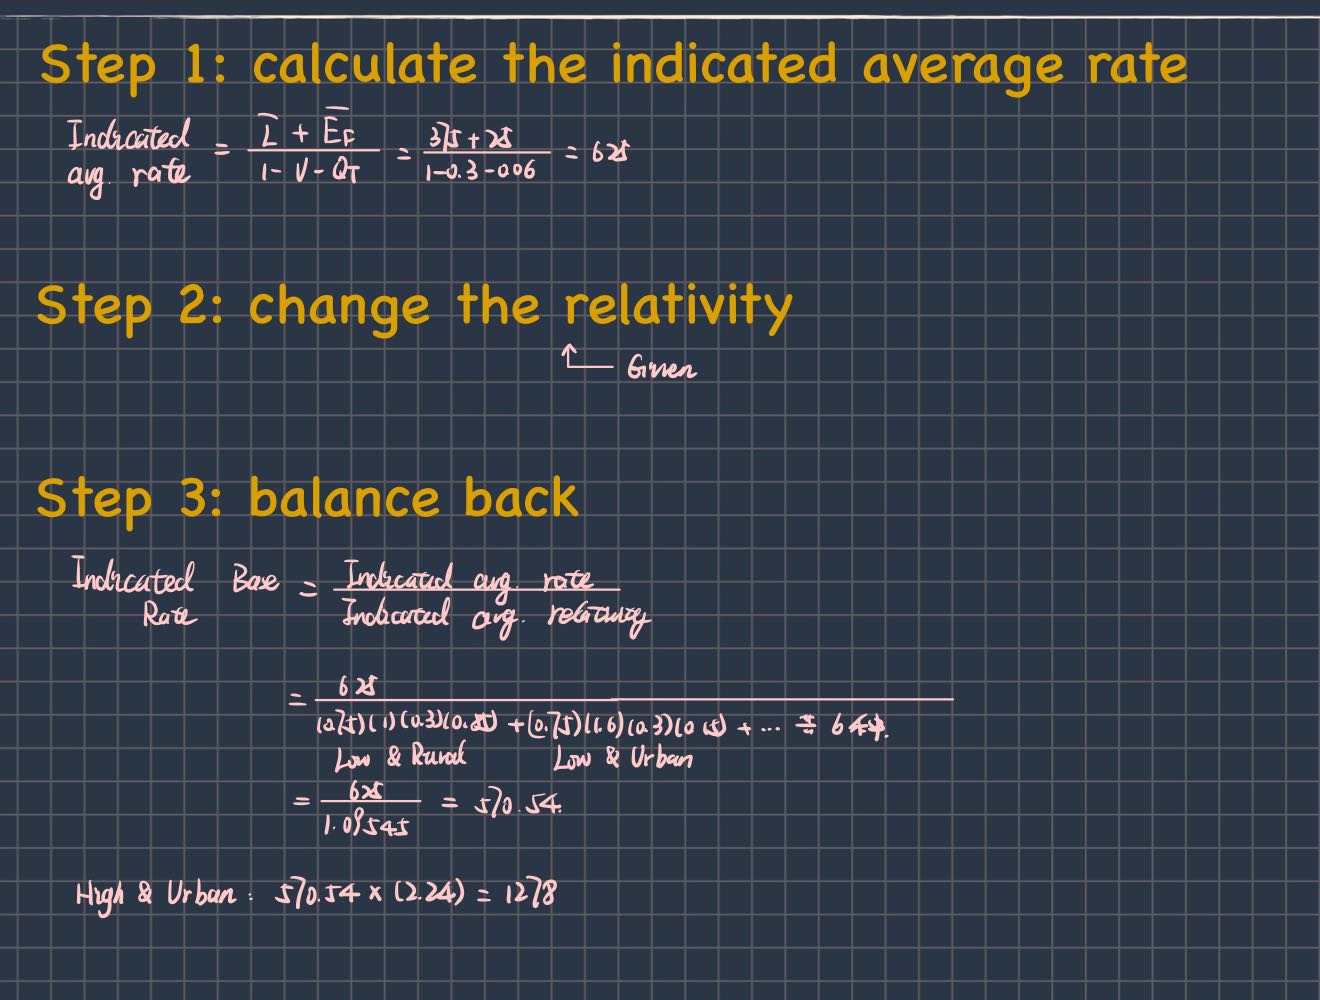 Step 1: calculate the indicated average rate
Indicated avg. rate = (L̅ + E̅F) / (1 - V - QT) = (375 + 25) / (1-0.3-0.06) = 625
Step 2: change the relativity
Given
Step 3: balance back
Indicated Base Rate = Indicated avg. rate / Indicated avg. relativity
= 625 / ((0.75)(1)(0.3)(0.85) + (0.75)(1.6)(0.3)(0.15) + ...
Low & Rural Low & Urban
= 625 / 1.09545 = 570.54.
High & Urban: 570.54 x (2.24) = 1278